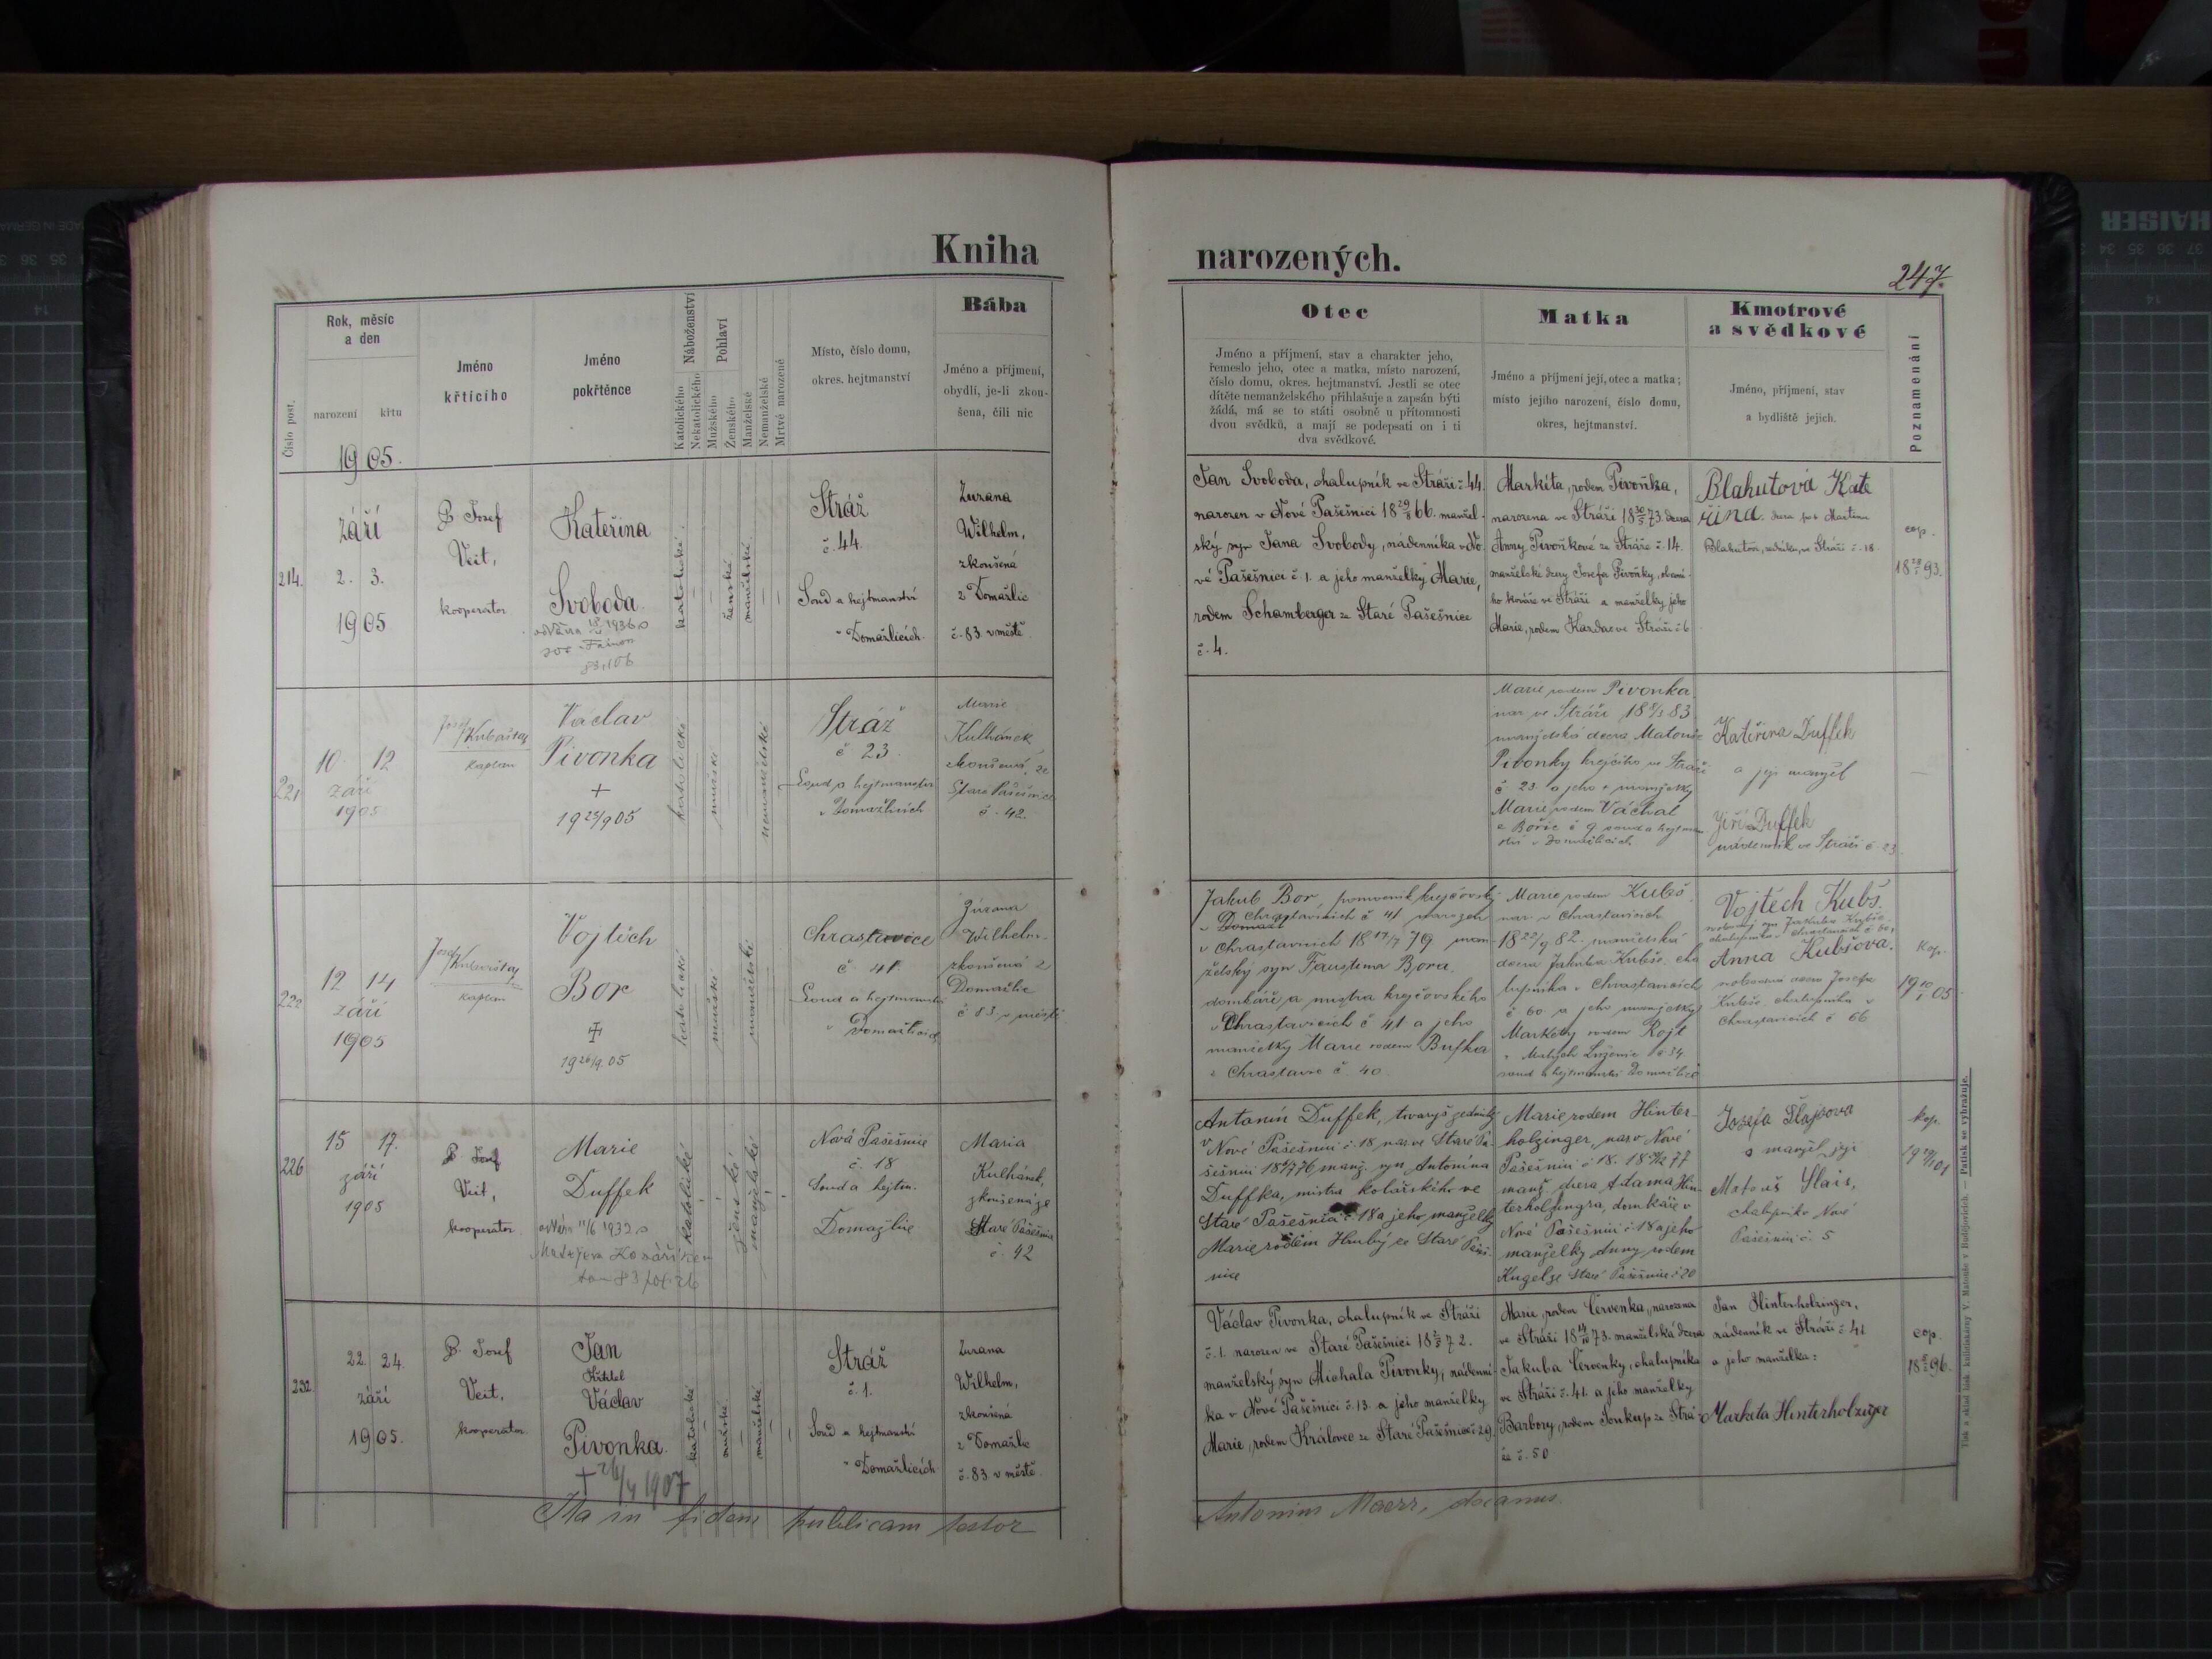 Kniha
narozených.
247.
Číslo post.
Rok, měsíc
a den
narození
křtu
1905.
Jméno
křticího
Jméno
pokřtěnce
Náboženství
Katolického
Nekatolického
Pohlaví
Mužského
Ženského
Manželské
Nemanželské
Mrtvě narozené
Místo, číslo domu,
okres. hejtmanství
Bába
Jméno a příjmení,
obydlí, je-li zkou-
šena, čili nic
Otec
Jméno a příjmení, stav a charakter jeho,
řemeslo jeho, otec a matka, místo narození,
číslo domu, okres. hejtmanství. Jestli se otec
dítěte nemanželského přihlašuje a zapsán býti
žádá, má se to státi osobně u přítomnosti
dvou svědků, a mají se podepsati on i ti
dva svědkové.
Matka
Jméno a příjmení její, otec a matka;
místo jejího narození, číslo domu,
okres, hejtmanství.
Kmotrové
a svědkové
Jméno, příjmení, stav
a bydliště jejich.
Poznamenání
214.
září
2. 3.
1905
P. Josef
Veit,
kooperator
Kateřina
Svoboda
83,106
katolické
ženské
manželské
Stráž
č. 44.
Soud a hejtmanství
v Domažlicích.
Zuzana
Wilhelm,
zkoušená
z Domažlic
č. 83 v městě
Jan Svoboda, chalupník ve Stráži č. 44.
narozen v Nové Pašešnici 18 29/8 66. manžel-
ský syn Jana Svobody, nádenníka v No-
vé Pašešnici č. 1. a jeho manželky Marie,
rodem Schamberger ze Staré Pašešnice
č. 4.
Markéta, rodem Pivoňka,
narozena ve Stráži 18 30/5 73. dcera
Anny Pivoňkové ze Stráže č. 14.
manželské dcery Josefa Pivoňky, obecní-
ho kováře ve Stráži a manželky jeho
Marie, rodem Kardac ve Stráži č. 6
Blahutová Kate
řina. dcera po Martinu
Blahutovi, ve Stráži č. 18
cop.
93.
221
10. 12
září
1905
Josef Kubaštaj
kaplan
Václav
Pivonka
+
19 25/9 05
katolické
mužské
nemanželské
Stráž
č 23.
Soud a hejtmanství
v Domažlicích
Marie
Kulhánek
zkoušená, ze
Staré Pašešnice
č. 42.
Marie rodem Pivonka
nar. ve Stráži 83
manželská dcera Matouše
Pivonky krejčího ve Stráži
č 23. a jeho manželky
Marie rodem Váchal
z Bořic č 9 soud a hejtman
ství v Domažlicích
Kateřina Duffek
a její manžel
Jiří Duffek
nádenník ve Stráži č. 23.
222
12 14
září
1905
Josef Kubaštaj
kaplan
Vojtěch
Bor
19 26/9. 05
katolické
mužské
manželské
Chrastavice
č. 41
Soud a hejtmanství
v Domažlicích
Zuzana
Wilhelm.
zkoušená z
Domažlic
č 83. v městě
Jakub Bor, pomocník krejčovský
v Chrastavicích č 41 narozen
v Chrastavicích 18 17/7 79 man-
želský syn Faustina Bora
domkáře a mistra krejčovského
v Chrastavicích č 41 a jeho
manželky Marie rodem Bufka
z Chrastavic č. 40.
Marie rodem Kubš
nar. v Chrastavicích
18 22/9 82. manželská
dcera Jakuba Kubše, cha
lupníka v Chrastavicích
č 60 a jeho manželky
Markéty rodem Rojt
z Malých Luženic č 34
soud a hejtmanství Domažlice
Vojtěch Kubš.
syn Jakuba Kubše
chalupníka v Chrastavicích č. 60,
Anna Kubšova.
svobodná dcera Josefa
Kubše, chalupníka v
Chrastavicích č 66
kop.
05.
226
15 17.
září
1905
P. Josef
Veit,
kooperator
Marie
Duffek
11/6 1932
83 fol. 26
katolické
ženské
manželské
Nová Pašešnice
č. 18
Soud a hejtm.
Domažlice
Maria
Kulhánek,
zkoušená ze
Staré Pašešnice
č. 42
Antonín Duffek, tovaryš zednický
v Nové Pašešnici č. 18 nar. ve Staré Pa-
šešnici 76 manž. syn Antonína
Duffka, mistra kolářského ve
Staré Pašešnici č. 18 a jeho manželky
Marie rodem Hrubý ze Staré Pašeš-
nice
Marie rodem Hinter-
holzinger, nar. v Nové
Pašešnici č. 18. 77
manž. dcera Adama Hin-
terholzingra, domkáře v
Nové Pašešnici č. 18 a jeho
manželky Anny rodem
Kugel ze Staré Pašešnice č. 20
Josefa Šlajsova
a manžel její
Matouš Slais,
chalupník v Nové
Pašešnici č. 5
kop.
232.
22. 24.
září
1905.
P. Josef
Veit,
kooperator
Jan
Křtitel
Václav
Pivonka.
+ 26/4 1907
katolické
mužské
manželské
Stráž
č. 1.
Soud a hejtmanství
v Domažlicích
Zuzana
Wilhelm,
zkoušená
z Domažlic
č. 83 v městě.
Václav Pivonka, chalupník ve Stráži
č. 1. narozen ve Staré Pašešnici 72.
manželský syn Michala Pivonky, nádenní-
ka v Nové Pašešnici č. 13. a jeho manželky
Marie, rodem Královec ze Staré Pašešnice č. 29.
Marie, rodem Červenka, narozena
ve Stráži 73. manželská dcera
Jakuba Červenky, chalupníka
ve Stráži č. 41. a jeho manželky
Barbory, rodem Soukup ze Strá-
že č. 50
Jan Hinterholzinger,
nádenník ve Stráži č. 41
a jeho manželka:
Marketa Hinterholziger
cop.
96.
Ita in fidem publicam testor
Antonius Maerz, decanus.